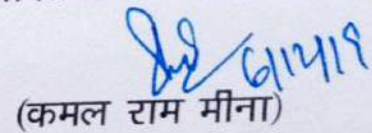 6/12/19
(कमल राम मीना)